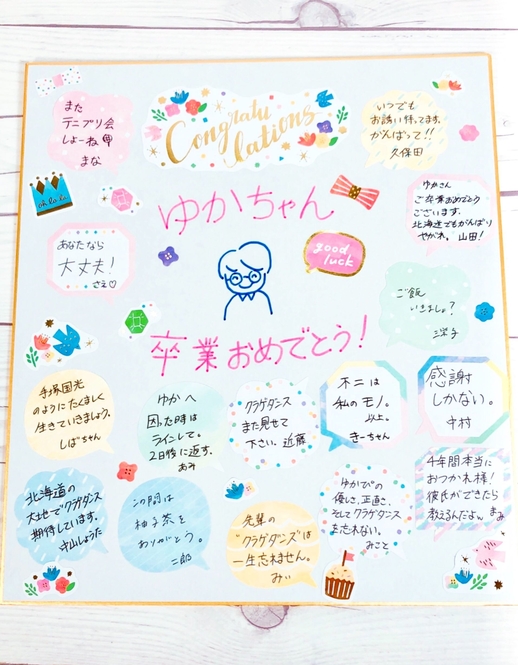 また
テニプリ会
しよーね
まな
Congratu
lations
いつでも
お誘い待ってます。
がんばって!!
久保田
oh la la
ゆかちゃん
ゆかさん
ご卒業おめでとう
ございます。
北海道でもがんばり
やがれ。山田!
あなたなら
大丈夫!
さえ♡
good
luck
ご飯
いきましょ?
卒業おめでとう!
手塚国光
のようにたくましく
生きていきましょう。
しばちゃん
ゆかへ
困った時は
ラインして。
2日後に返す。
あみ
クラゲダンス
また見せて
下さい。近藤
不二は
私のモノ。
以上。
きーちゃん
感謝
しかない。
中村
北海道の
大地でクラゲダンス
期待しています。
守山しょうた
この間は
柚子茶を
ありがとう。
二郎
先輩の
"クラゲダンス"は
一生忘れません。
みぃ
ゆかぴの
優しさ、正直さ、
そしてクラゲダンス
を忘れない。
みこと
4年間本当に
おつかれ様!
彼氏ができたら
教えるんだよん。まぁ